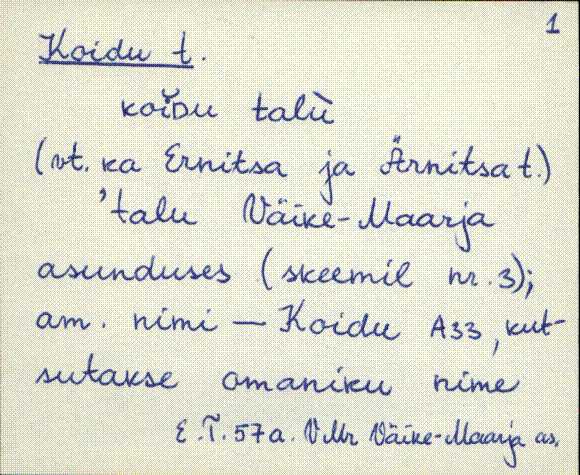 1
Koidu t.
koĭDu talù
(vt. ka Ernitsa ja Ärnitsa t.)
'talu Väike-Maarja
asunduses (skeemil nr. 3);
am. nimi — Koidu A33, kut-
sutakse omaniku nime
E.T. 57a. VMr Väike-Maarja as.